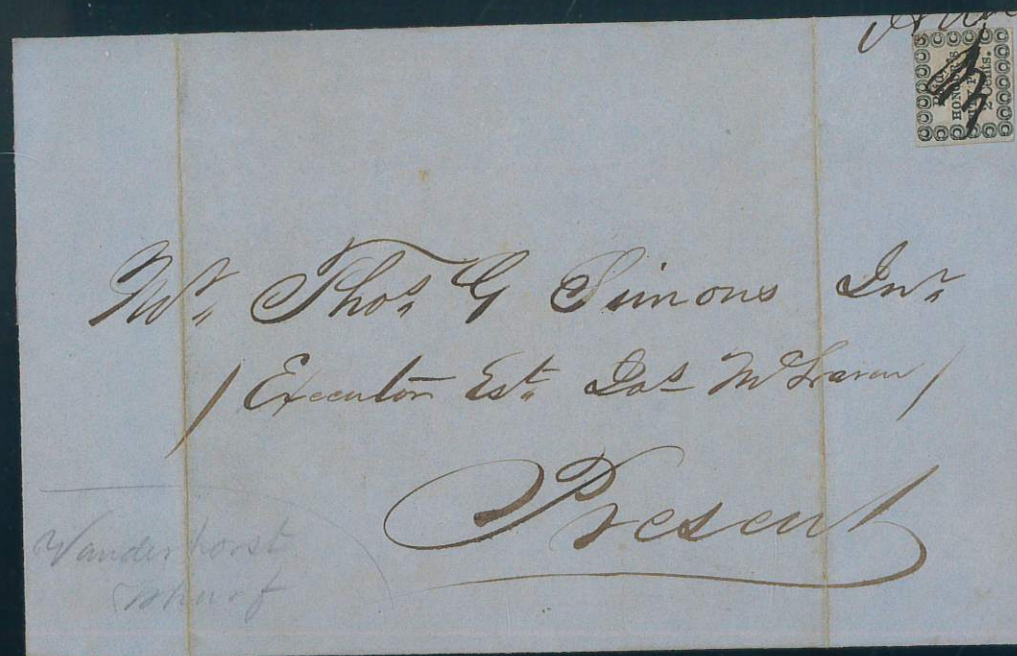 PAID.
HONOUR'S
CITY POST
2 Cents.
Mr. Thos. G Simons Jnr.
/ Executor Est. Jas McLaren /
Present
Vanderhorst
Wharf